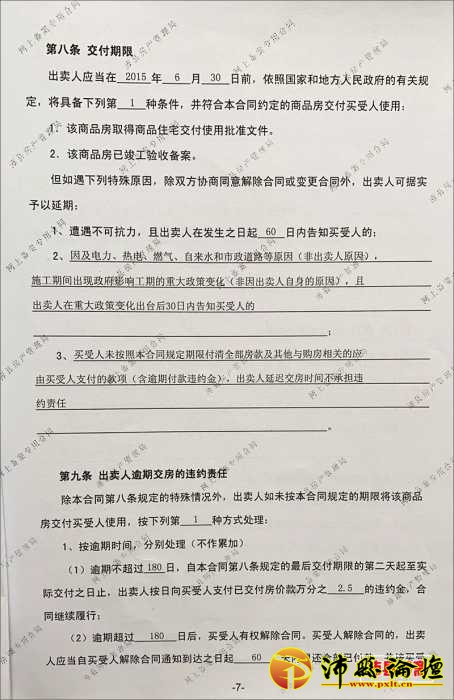 第八条 交付期限
出卖人应当在 2015 年 6 月 30 日前，依照国家和地方人民政府的有关规
定，将具备下列第 1 种条件，并符合本合同约定的商品房交付买受人使用：
1. 该商品房取得商品住宅交付使用批准文件。
2、该商品房已竣工验收备案。
但如遇下列特殊原因，除双方协商同意解除合同或变更合同外，出卖人可据实
予以延期：
1、遭遇不可抗力，且出卖人在发生之日起 60 日内告知买受人的；
2、因及电力、热电、燃气、自来水和市政道路等原因（非出卖人原因），
施工期间出现政府影响工期的重大政策变化（非因出卖人自身的原因），且
出卖人在重大政策变化出台后30日内告知买受人的
；
3、买受人未按照本合同规定期限付清全部房款及其他与购房相关的应
由买受人支付的款项（含逾期付款违约金），出卖人延迟交房时间不承担违
约责任
。
第九条 出卖人逾期交房的违约责任
除本合同第八条规定的特殊情况外，出卖人如未按本合同规定的期限将该商品
房交付买受人使用，按下列第 1 种方式处理：
1、按逾期时间，分别处理（不作累加）
（1）逾期不超过 180 日，自本合同第八条规定的最后交付期限的第二天起至实
际交付之日止，出卖人按日向买受人支付已交付房价款万分之 2.5 的违约金，合
同继续履行；
（2）逾期超过 180 日后，买受人有权解除合同。买受人解除合同的，出卖
人应当自买受人解除合同通知到达之日起 60
-7-
沛县论坛
www.pxlt.cn
沛县房产管理局
网上备案专用合同